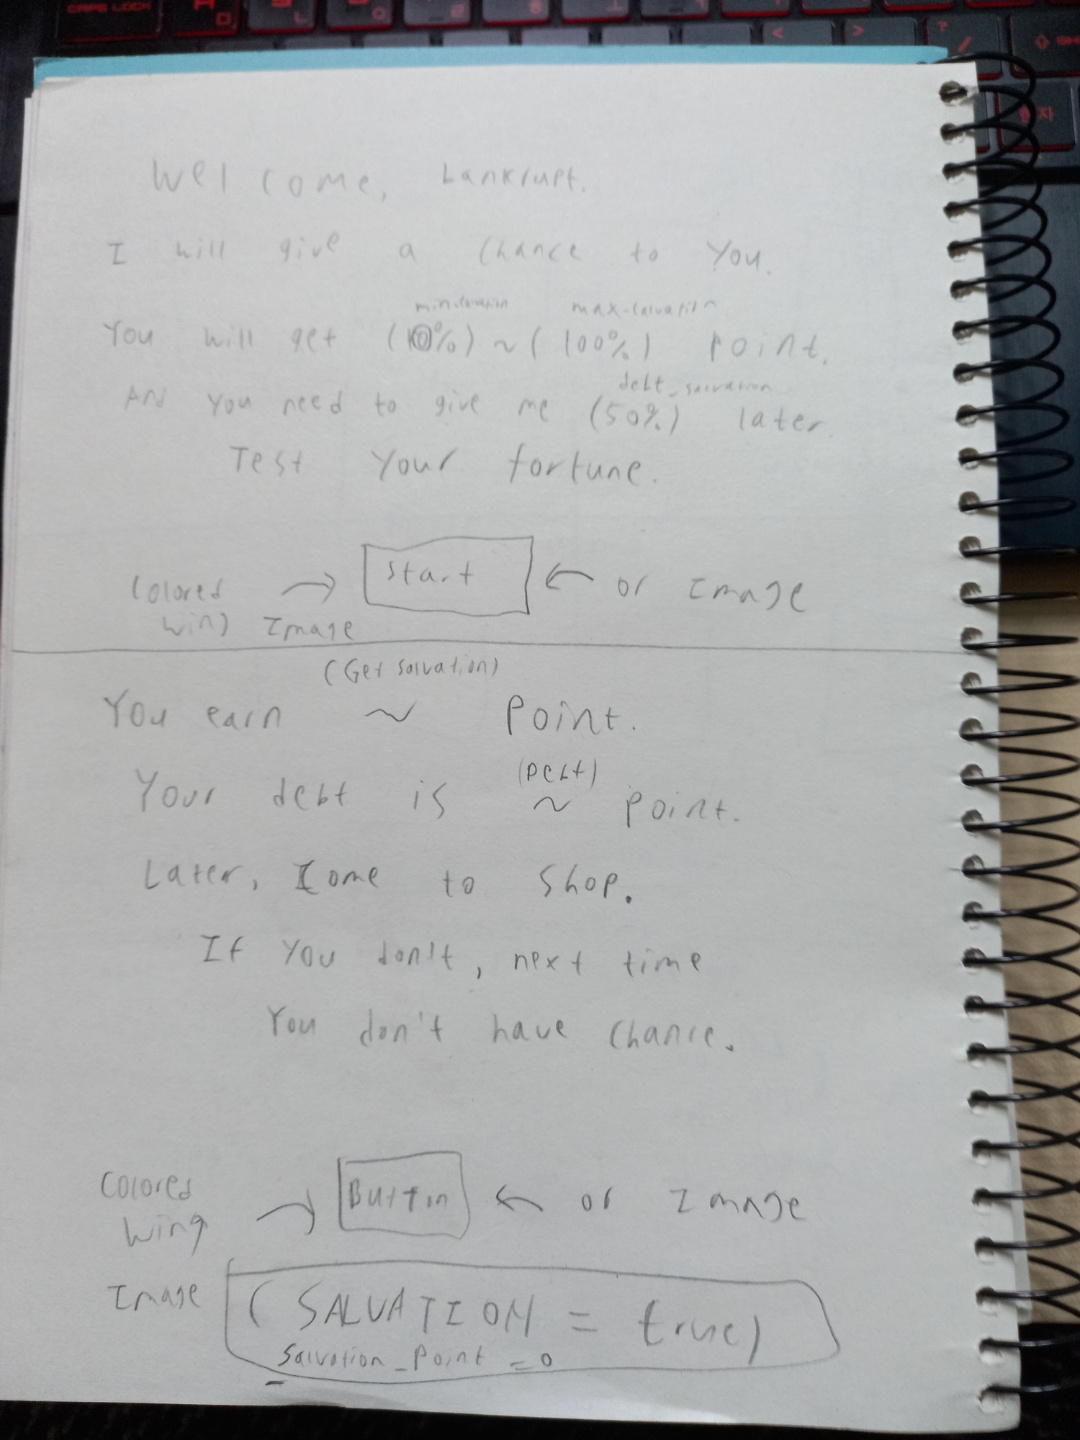 CAPS LOCK
Welcome, bankrupt.
I will give a chance to you.
min_salvation max_salvation
You will get (10%) ~ (100%) point.
debt_salvation
And you need to give me (50%) later.
Test your fortune.
Colored → Start ← or Image
wing Image
(Get salvation)
You earn ~ Point.
(Debt)
Your debt is ~ point.
Later, come to shop.
If you don't, next time
You don't have chance.
Colored → Button ← or Image
wing
Image (SALVATION = true)
Salvation_Point = 0